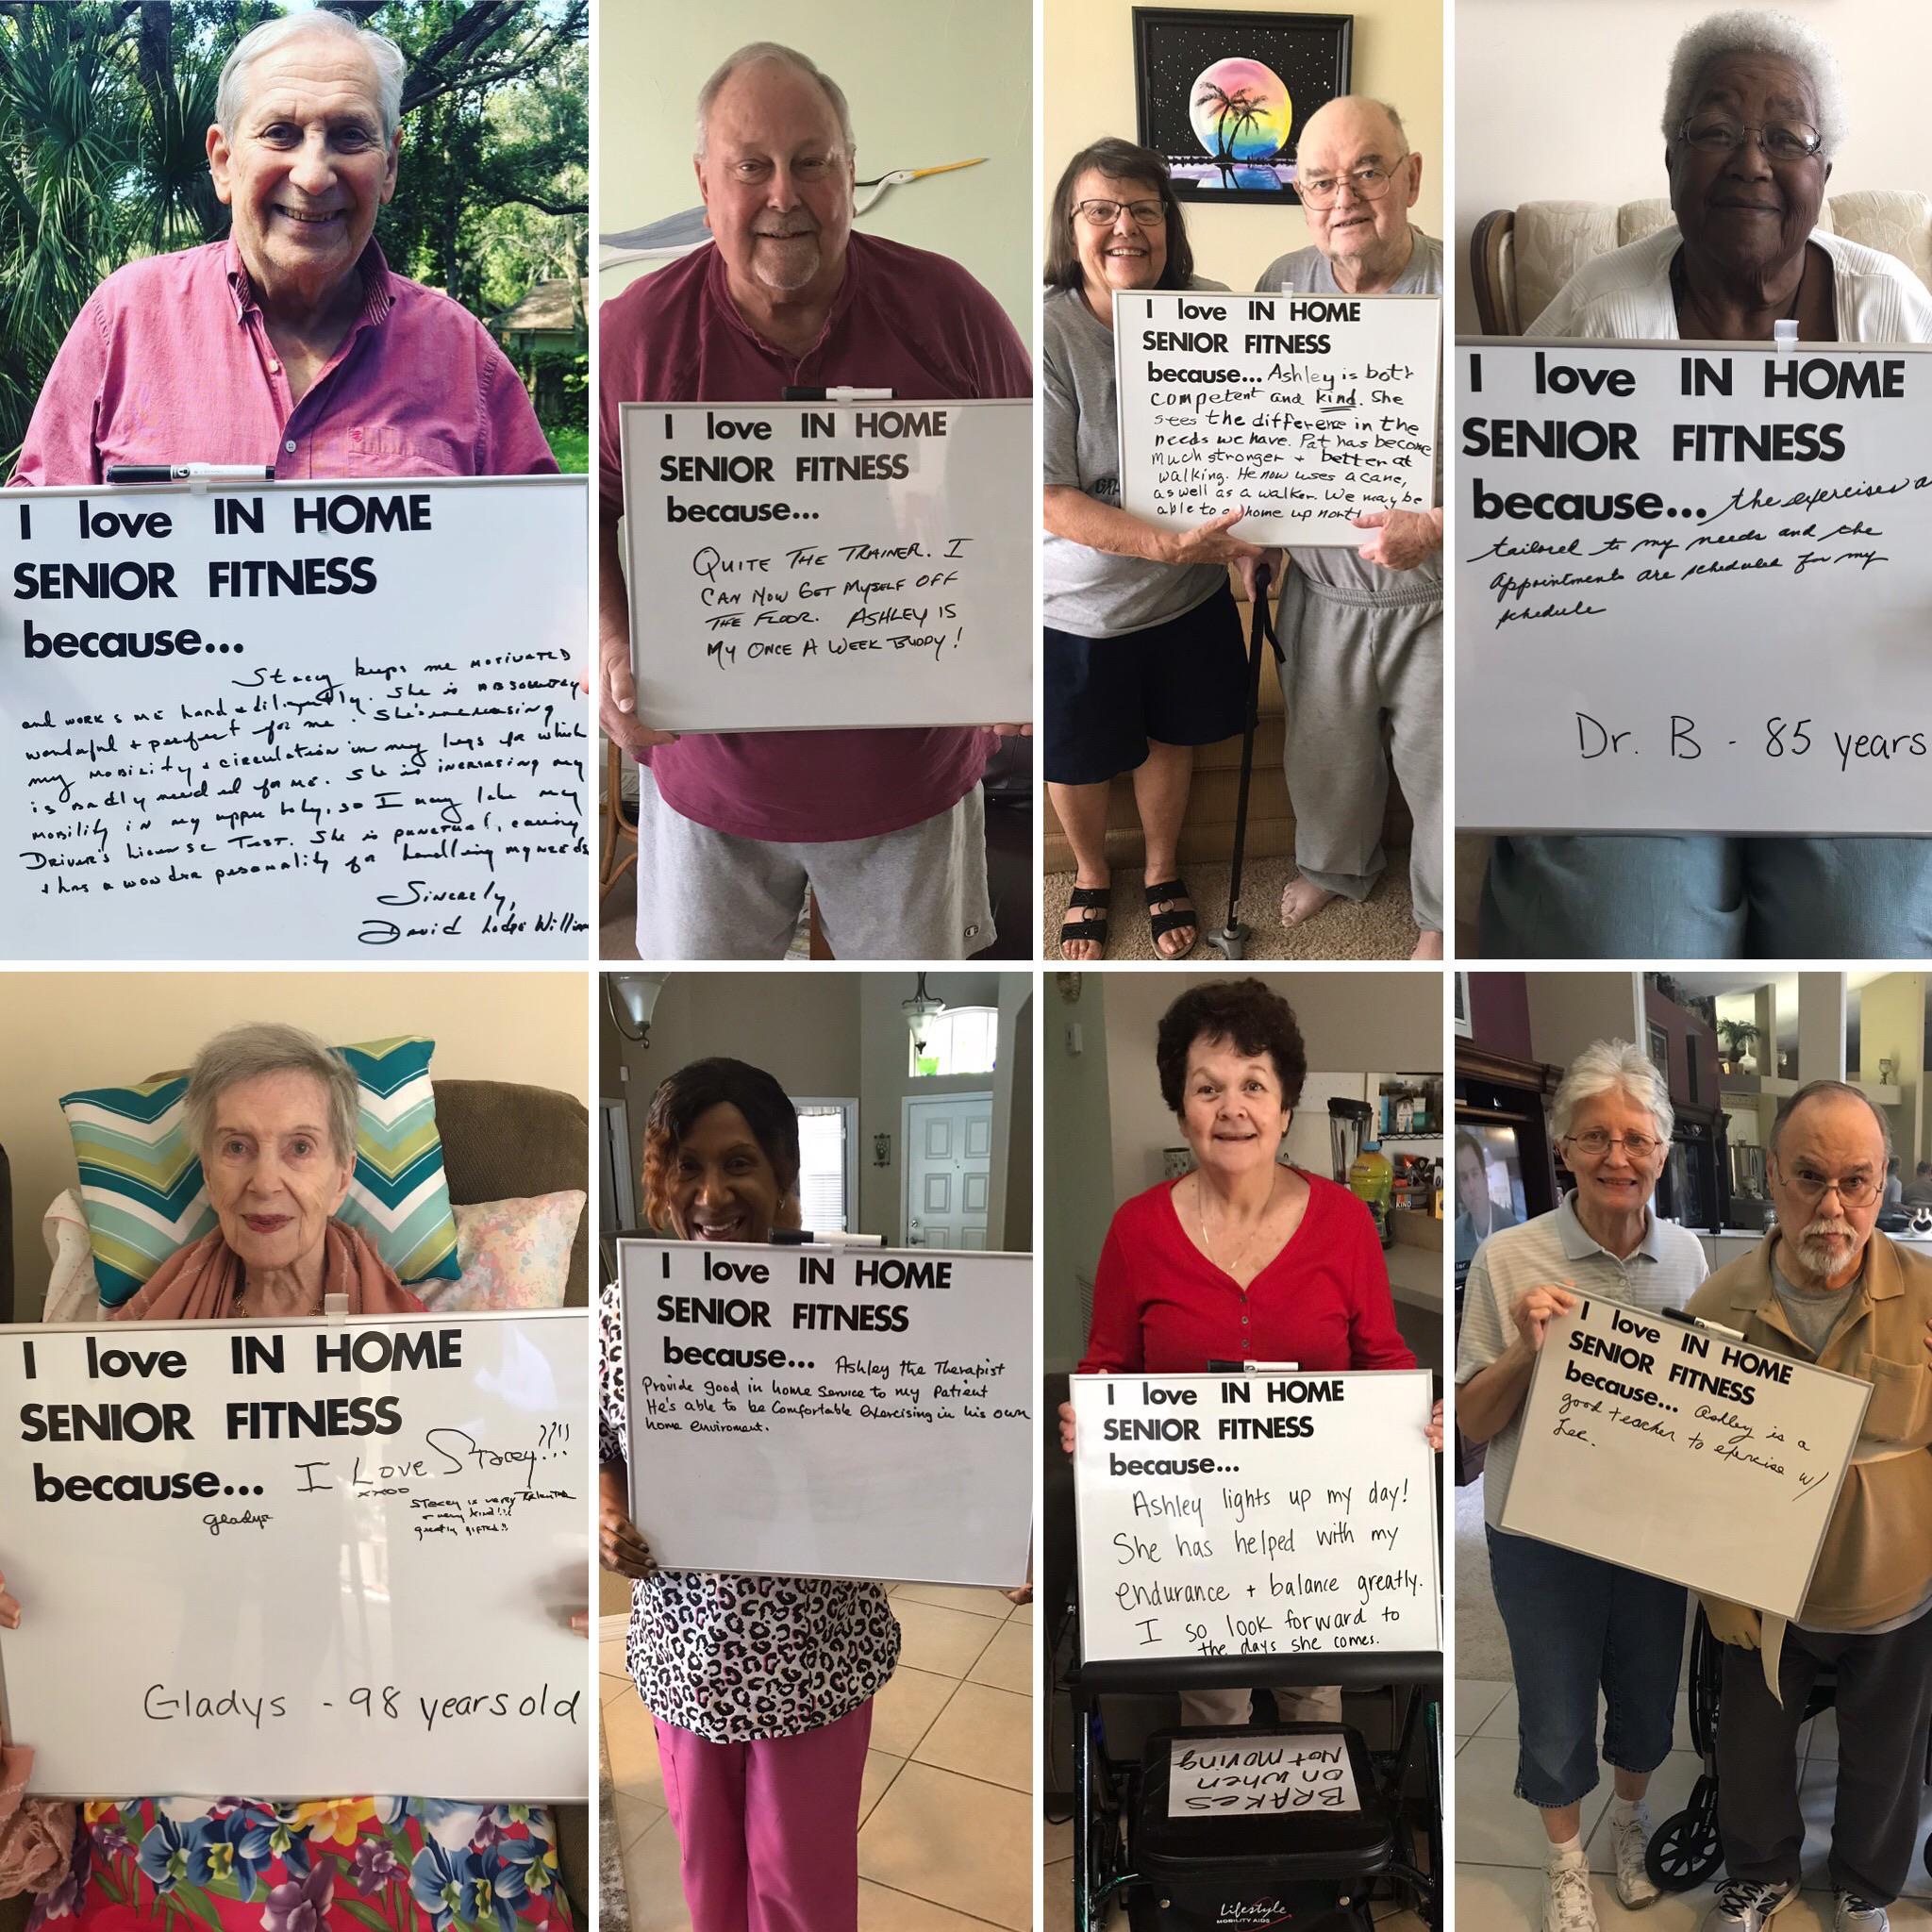 I love IN HOME
SENIOR FITNESS
because...
Stacey keeps me MOTIVATED
and WORKS ME hard + diligently. She is ABSOLUTELY
wonderful + perfect for me. She's increasing
my MOBILITY + circulation in my legs for which
is badly needed for ME. She is INCREASING my
mobility IN my upper body, so I may take my
DRIVER'S License TEST. She is punctual, caring
+ has a personality for handling my needs
Sincerely,
David Lodge
I love IN HOME
SENIOR FITNESS
because...
QUITE THE TRAINER. I
CAN NOW GET MYSELF OFF
THE FLOOR. ASHLEY IS
MY ONCE A WEEK BUDDY!
I love IN HOME
SENIOR FITNESS
because... Ashley is both
competent and kind. She
sees the difference in the
needs we have. Pat has become
much stronger + better at
walking. He now uses a cane,
as well as a walker. We may be
able to home up north
I love IN HOME
SENIOR FITNESS
because... the exercises a
tailored to my needs and the
appointments are scheduled for my
schedule
Dr. B - 85 years
I love IN HOME
SENIOR FITNESS
because... I LOVE Stacey!!!!
xxoo
Stacey is very talented
+ very kind!!!
greatly gifted!!
Gladys
Gladys - 98 years old
I love IN HOME
SENIOR FITNESS
because... Ashley the Therapist
Provide good in home service to my Patient
He's able to be Comfortable Exercising in his own
home enviroment.
I love IN HOME
SENIOR FITNESS
because...
Ashley lights up my day!
She has helped with my
endurance + balance greatly.
I so look forward to
the days she comes.
BRAKES
on when
Not moving
Lifestyle
MOBILITY AIDS
KIND
I love IN HOME
SENIOR FITNESS
because... Ashley is a
good teacher to exercise w/
Lee.